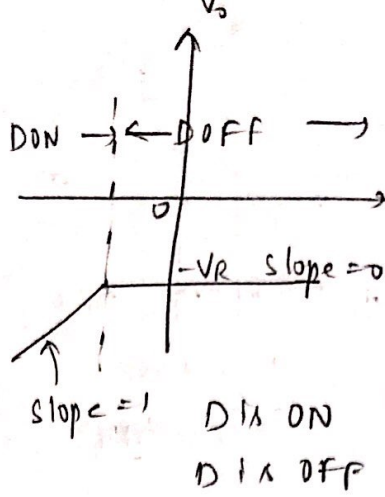 Vo
DON → ← D OFF →
0
-VR slope=0
slope=1
D is ON
D is OFF